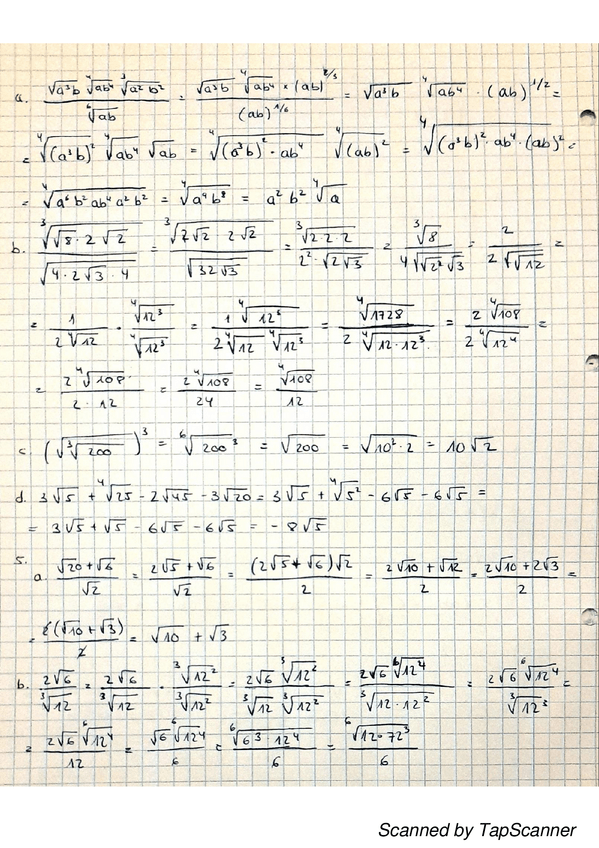 a. \frac{\sqrt{a^3b} \sqrt[4]{ab^4} \sqrt[3]{a^2b^2}}{\sqrt[6]{ab}} = \frac{\sqrt{a^3b} \sqrt[4]{ab^4} × (ab)^{2/3}}{(ab)^{1/6}} = \sqrt{a^3b} \sqrt[4]{ab^4} · (ab)^{1/2} =
= \sqrt[4]{(a^3b)^2} \sqrt[4]{ab^4} \sqrt{ab} = \sqrt[4]{(a^3b)^2 · ab^4} \sqrt[4]{(ab)^2} = \sqrt[4]{(a^3b)^2 · ab^4 · (ab)^2} =
= \sqrt[4]{a^6 b^2 ab^4 a^2 b^2} = \sqrt[4]{a^9 b^8} = a^2 b^2 \sqrt[4]{a}
b. \frac{\sqrt[3]{\sqrt{8} · 2 \sqrt{2}}}{\sqrt{4 · 2\sqrt{3} · 4}} = \frac{\sqrt[3]{2\sqrt{2} 2\sqrt{2}}}{\sqrt{32\sqrt{3}}} = \frac{\sqrt[3]{2·2·2}}{2^2 · \sqrt{2\sqrt{3}}} = \frac{\sqrt[3]{8}}{4\sqrt{\sqrt{2^2}\sqrt{3}}} = \frac{2}{2\sqrt{\sqrt{12}}} =
= \frac{1}{2\sqrt[4]{12}} · \frac{\sqrt[4]{12^3}}{\sqrt[4]{12^3}} = \frac{1 \sqrt[4]{12^3}}{2\sqrt[4]{12} \sqrt[4]{12^3}} = \frac{\sqrt[4]{1728}}{2 \sqrt[4]{12·12^3}} = \frac{2 \sqrt[4]{108}}{2 \sqrt[4]{12^4}} =
= \frac{2\sqrt[4]{108}}{2 · 12} = \frac{2\sqrt[4]{108}}{24} = \frac{\sqrt[4]{108}}{12}
c. (\sqrt{\sqrt[3]{200}})^3 = \sqrt[6]{200^3} = \sqrt{200} = \sqrt{10^2 · 2} = 10\sqrt{2}
d. 3\sqrt{5} + \sqrt[4]{25} - 2\sqrt{45} - 3\sqrt{20} = 3\sqrt{5} + \sqrt[4]{5^2} - 6\sqrt{5} - 6\sqrt{5} =
= 3\sqrt{5} + \sqrt{5} - 6\sqrt{5} - 6\sqrt{5} = -8\sqrt{5}
5.
a. \frac{\sqrt{20} + \sqrt{6}}{\sqrt{2}} = \frac{2\sqrt{5} + \sqrt{6}}{\sqrt{2}} = \frac{(2\sqrt{5} + \sqrt{6})\sqrt{2}}{2} = \frac{2\sqrt{10} + \sqrt{12}}{2} = \frac{2\sqrt{10} + 2\sqrt{3}}{2} =
= \frac{2(\sqrt{10} + \sqrt{3})}{2} = \sqrt{10} + \sqrt{3}
b. \frac{2\sqrt{6}}{\sqrt[3]{12}} = \frac{2\sqrt{6}}{\sqrt[3]{12}} · \frac{\sqrt[3]{12^2}}{\sqrt[3]{12^2}} = \frac{2\sqrt{6} \sqrt[3]{12^2}}{\sqrt[3]{12} \sqrt[3]{12^2}} = \frac{2\sqrt{6} \sqrt[6]{12^4}}{\sqrt[3]{12 · 12^2}} = \frac{2\sqrt{6} \sqrt[6]{12^4}}{\sqrt[3]{12^3}} =
= \frac{2\sqrt{6} \sqrt[6]{12^4}}{12} = \frac{\sqrt{6} \sqrt[6]{12^4}}{6} = \frac{\sqrt[6]{6^3 · 12^4}}{6} = \frac{\sqrt[6]{12 · 72^3}}{6}
Scanned by TapScanner